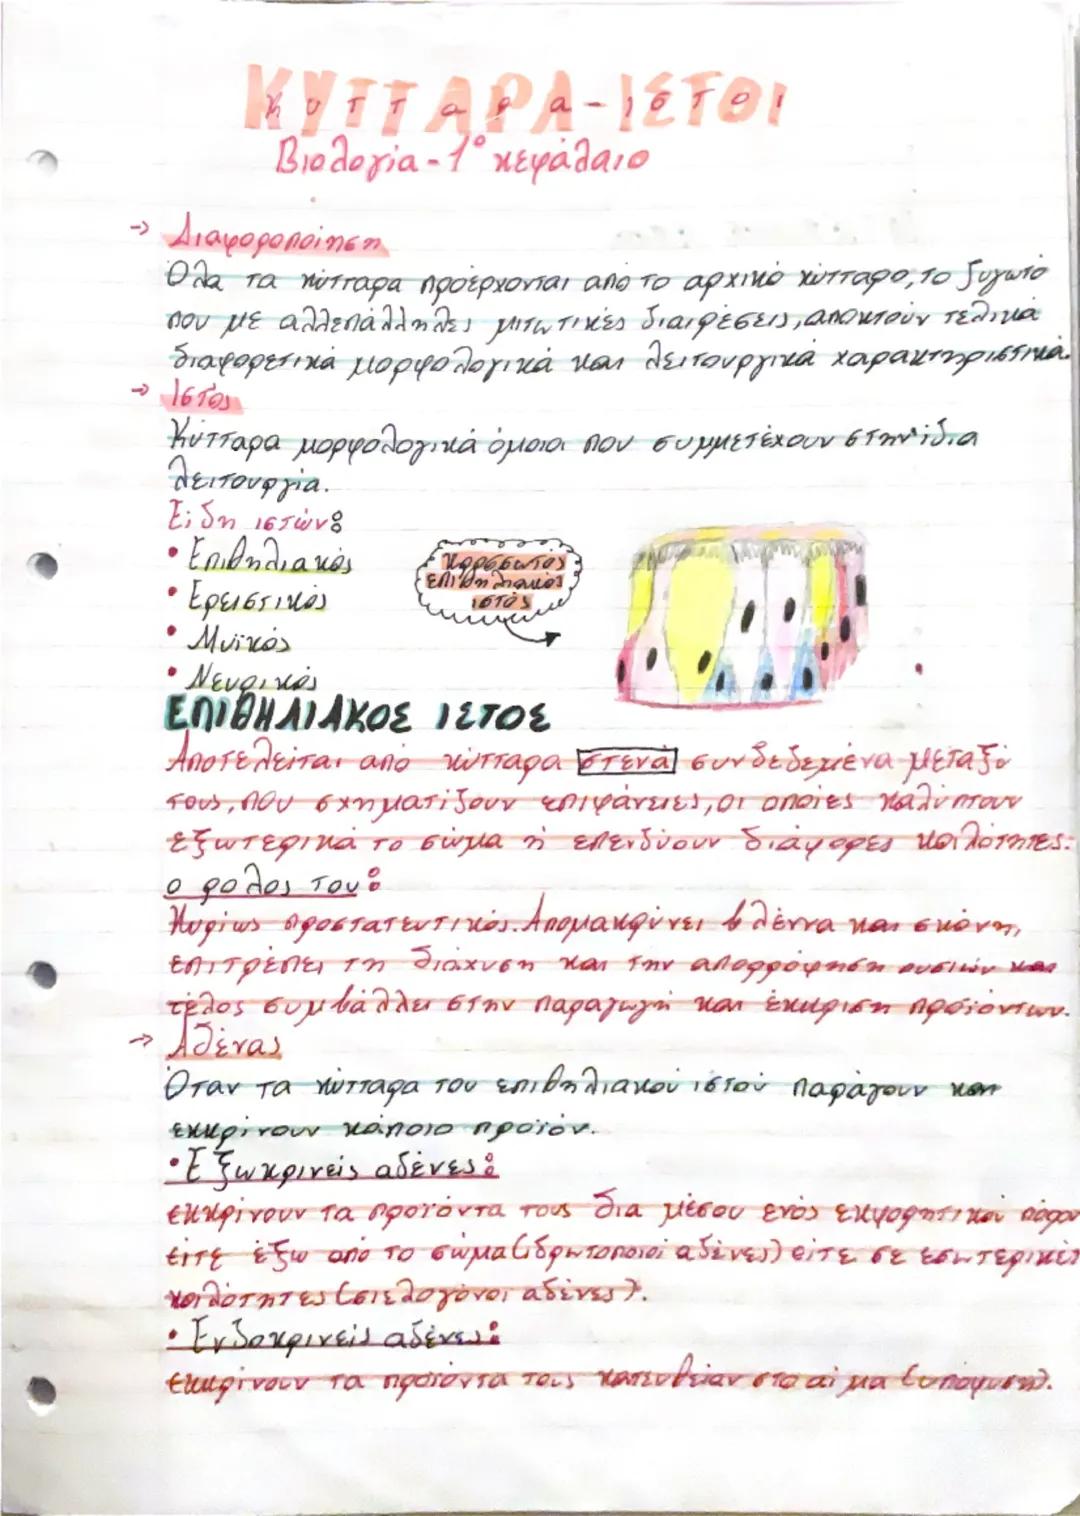 ΚΥΤΤΑΡΑ-ΙΣΤΟΙ
κυτταρα-ιστοι
Βιολογία-1° κεφάλαιο
→ Διαφοροποίηση
Όλα τα κύτταρα προέρχονται από το αρχικό κύτταρο, το ζυγωτό
που με αλλεπάλληλες μιτωτικές διαιρέσεις, αποκτούν τελικά
διαφορετικά μορφολογικά και λειτουργικά χαρακτηριστικά.
→ Ιστός
Κύτταρα μορφολογικά όμοια που συμμετέχουν στην ίδια
λειτουργία.
Είδη ιστών:
• Επιθηλιακός
• Ερειστικός
• Μυϊκός
• Νευρικός
κροσσωτός
επιθηλιακός
ιστός
ΕΠΙΘΗΛΙΑΚΟΣ ΙΣΤΟΣ
Αποτελείται από κύτταρα στενά συνδεδεμένα μεταξύ
τους, που σχηματίζουν επιφάνειες, οι οποίες καλύπτουν
εξωτερικά το σώμα ή επενδύουν διάφορες κοιλότητες.
ο ρόλος του:
Κυρίως προστατευτικός. Απομακρύνει βλέννα και σκόνη,
επιτρέπει τη διάχυση και την απορρόφηση ουσιών και
τέλος συμβάλλει στην παραγωγή και έκκριση προϊόντων.
→ Αδένας
Όταν τα κύτταρα του επιθηλιακού ιστού παράγουν και
εκκρίνουν κάποιο προϊόν.
• Εξωκρινείς αδένες:
εκκρίνουν τα προϊόντα τους δια μέσου ενός εκφορητικού πόρου
είτε έξω από το σώμα (ιδρωτοποιοί αδένες) είτε σε εσωτερικές
κοιλότητες (σιελογόνοι αδένες).
• Ενδοκρινείς αδένες:
εκκρίνουν τα προϊόντα τους κατευθείαν στο αίμα (υπόφυση).